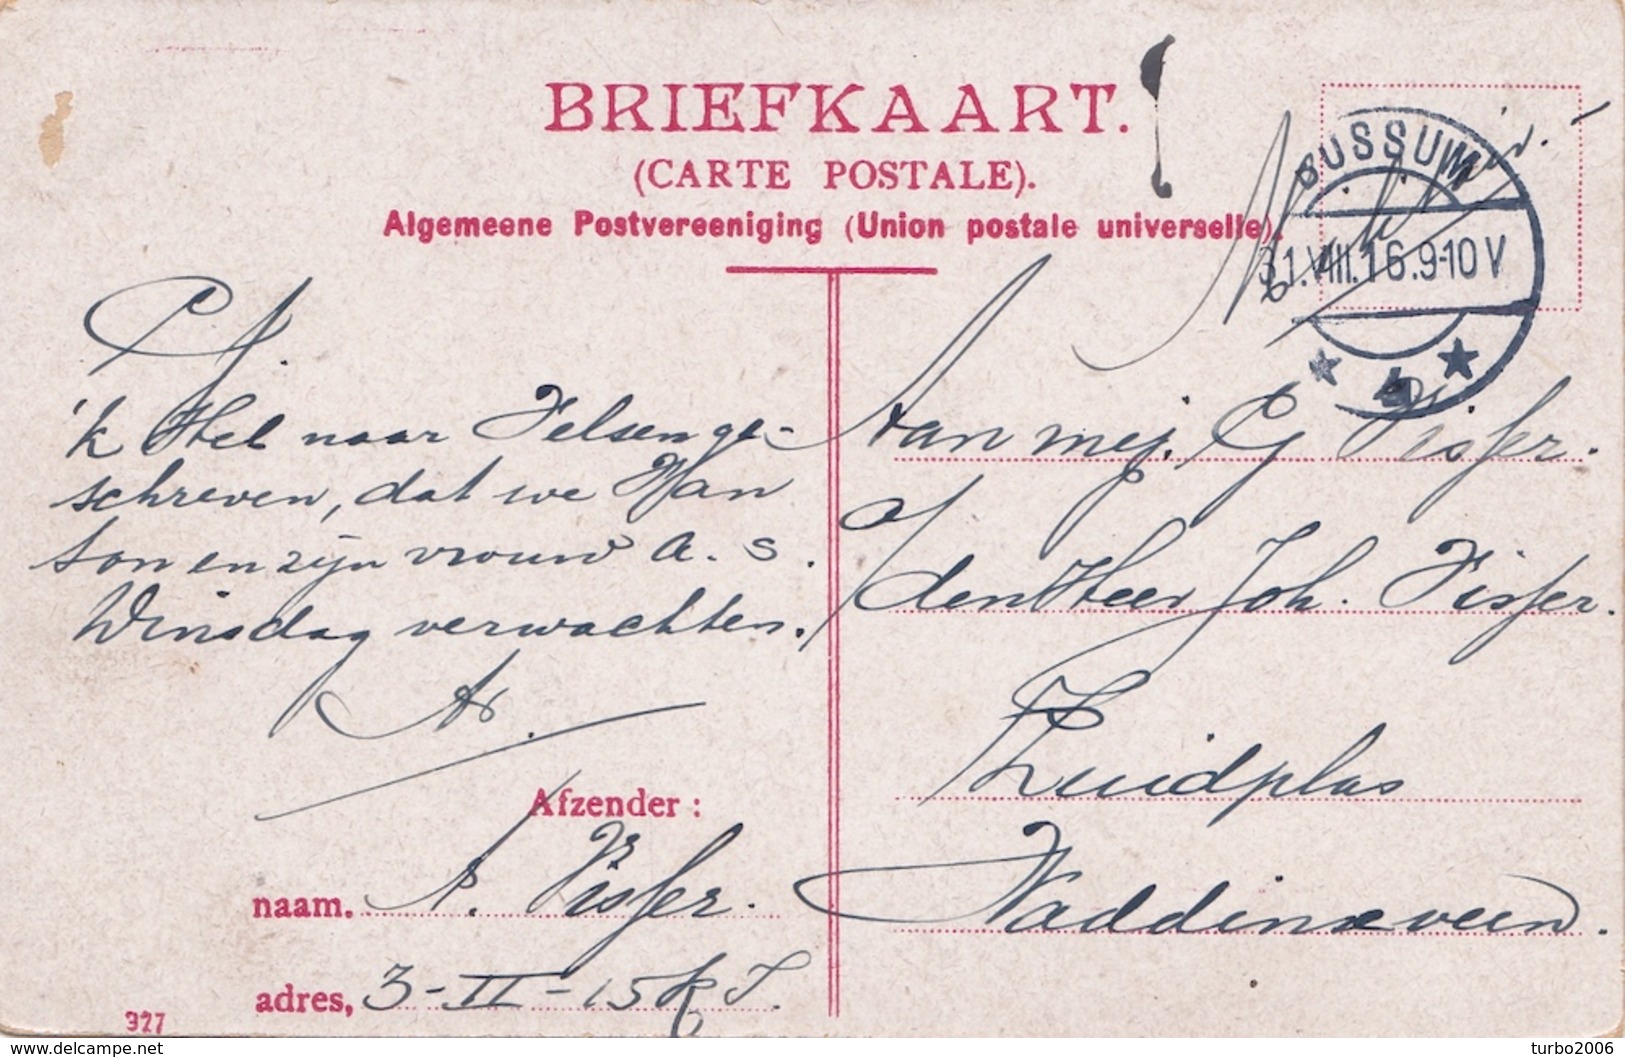 BRIEFKAART.
(CARTE POSTALE).
Algemeene Postvereeniging (Union postale universelle).
BUSSUM
31.VIII.16.9-10V
4
'k Heb naar Velsen ge-
schreven, dat we Han
son en zijn vrouw a. s.
Dinsdag verwachten.
Ar.
Afzender:
naam. A. Visser.
adres, 3-II-15
Aan mej. G Visser.
a/
den Heer Joh. Visser.
Zuidplas
Waddinxveen.
327
www.delcampe.net
turbo2006